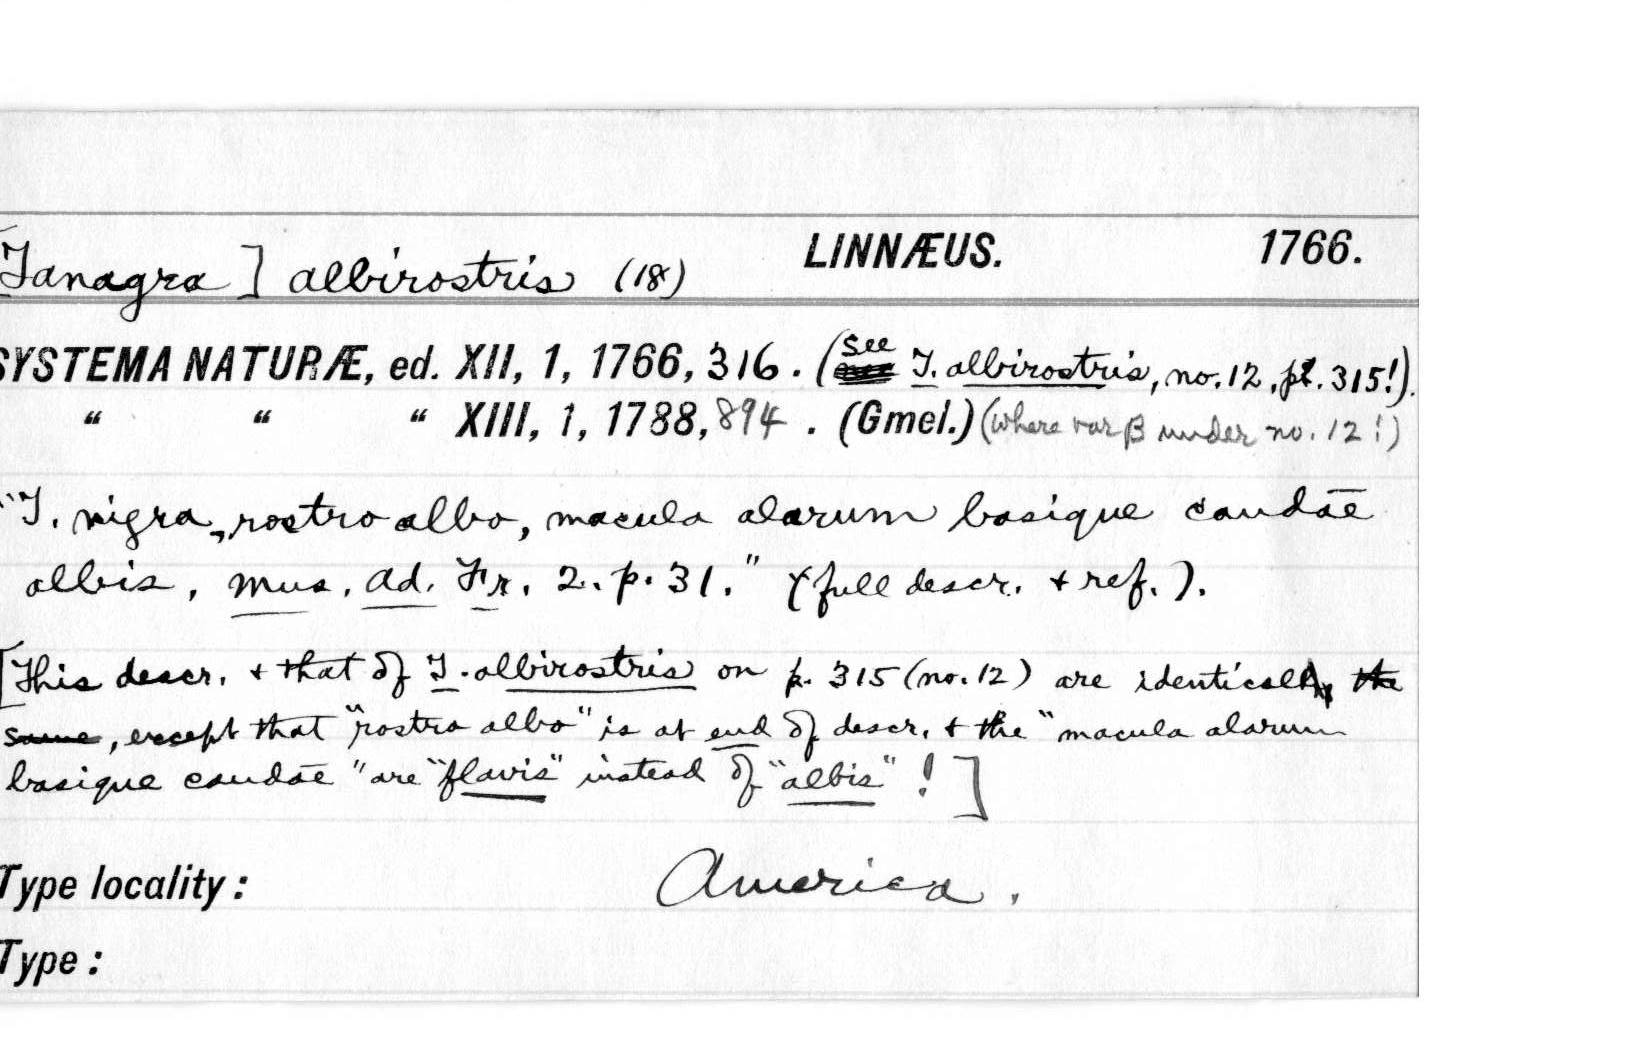 [Tanagra] albirostris (18) LINNÆUS. 1766.
SYSTEMA NATURÆ, ed. XII, 1, 1766, 316. (see T. albirostris, no. 12, p. 315!).
" " " XIII, 1, 1788, 894. (Gmel.) (where var β under no. 12!)
"T. nigra, rostro albo, macula alarum basique caudae
albis, Mus. Ad. Fr. 2. p. 31." (full descr. + ref.).
[This descr. + that of T. albirostris on p. 315 (no. 12) are identical, the
same, except that "rostro albo" is at end of descr. + the "macula alarum
basique caudae" are "flavis" instead of "albis"!]
Type locality: America.
Type: